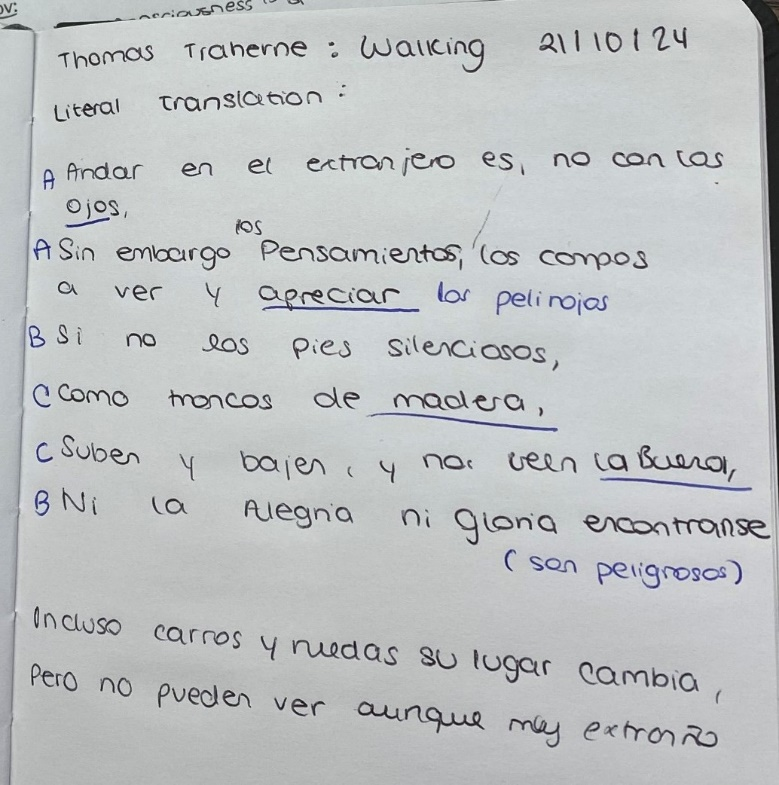 ov:
Thomas Traherne : Walking 21/10/24
Literal Translation :
A Andar en el extranjero es, no con los
ojos,
los
A Sin embargo Pensamientos, los compos
a ver y apreciar los pelirojas
B Si no los pies silenciosos,
C Como troncos de madera,
C Suben y bajen, y no veen la Buena,
B Ni la Alegria ni gloria encontranse
(son peligrosos)
Incluso carros y ruedas su lugar cambia,
Pero no pueden ver aunque muy extraño